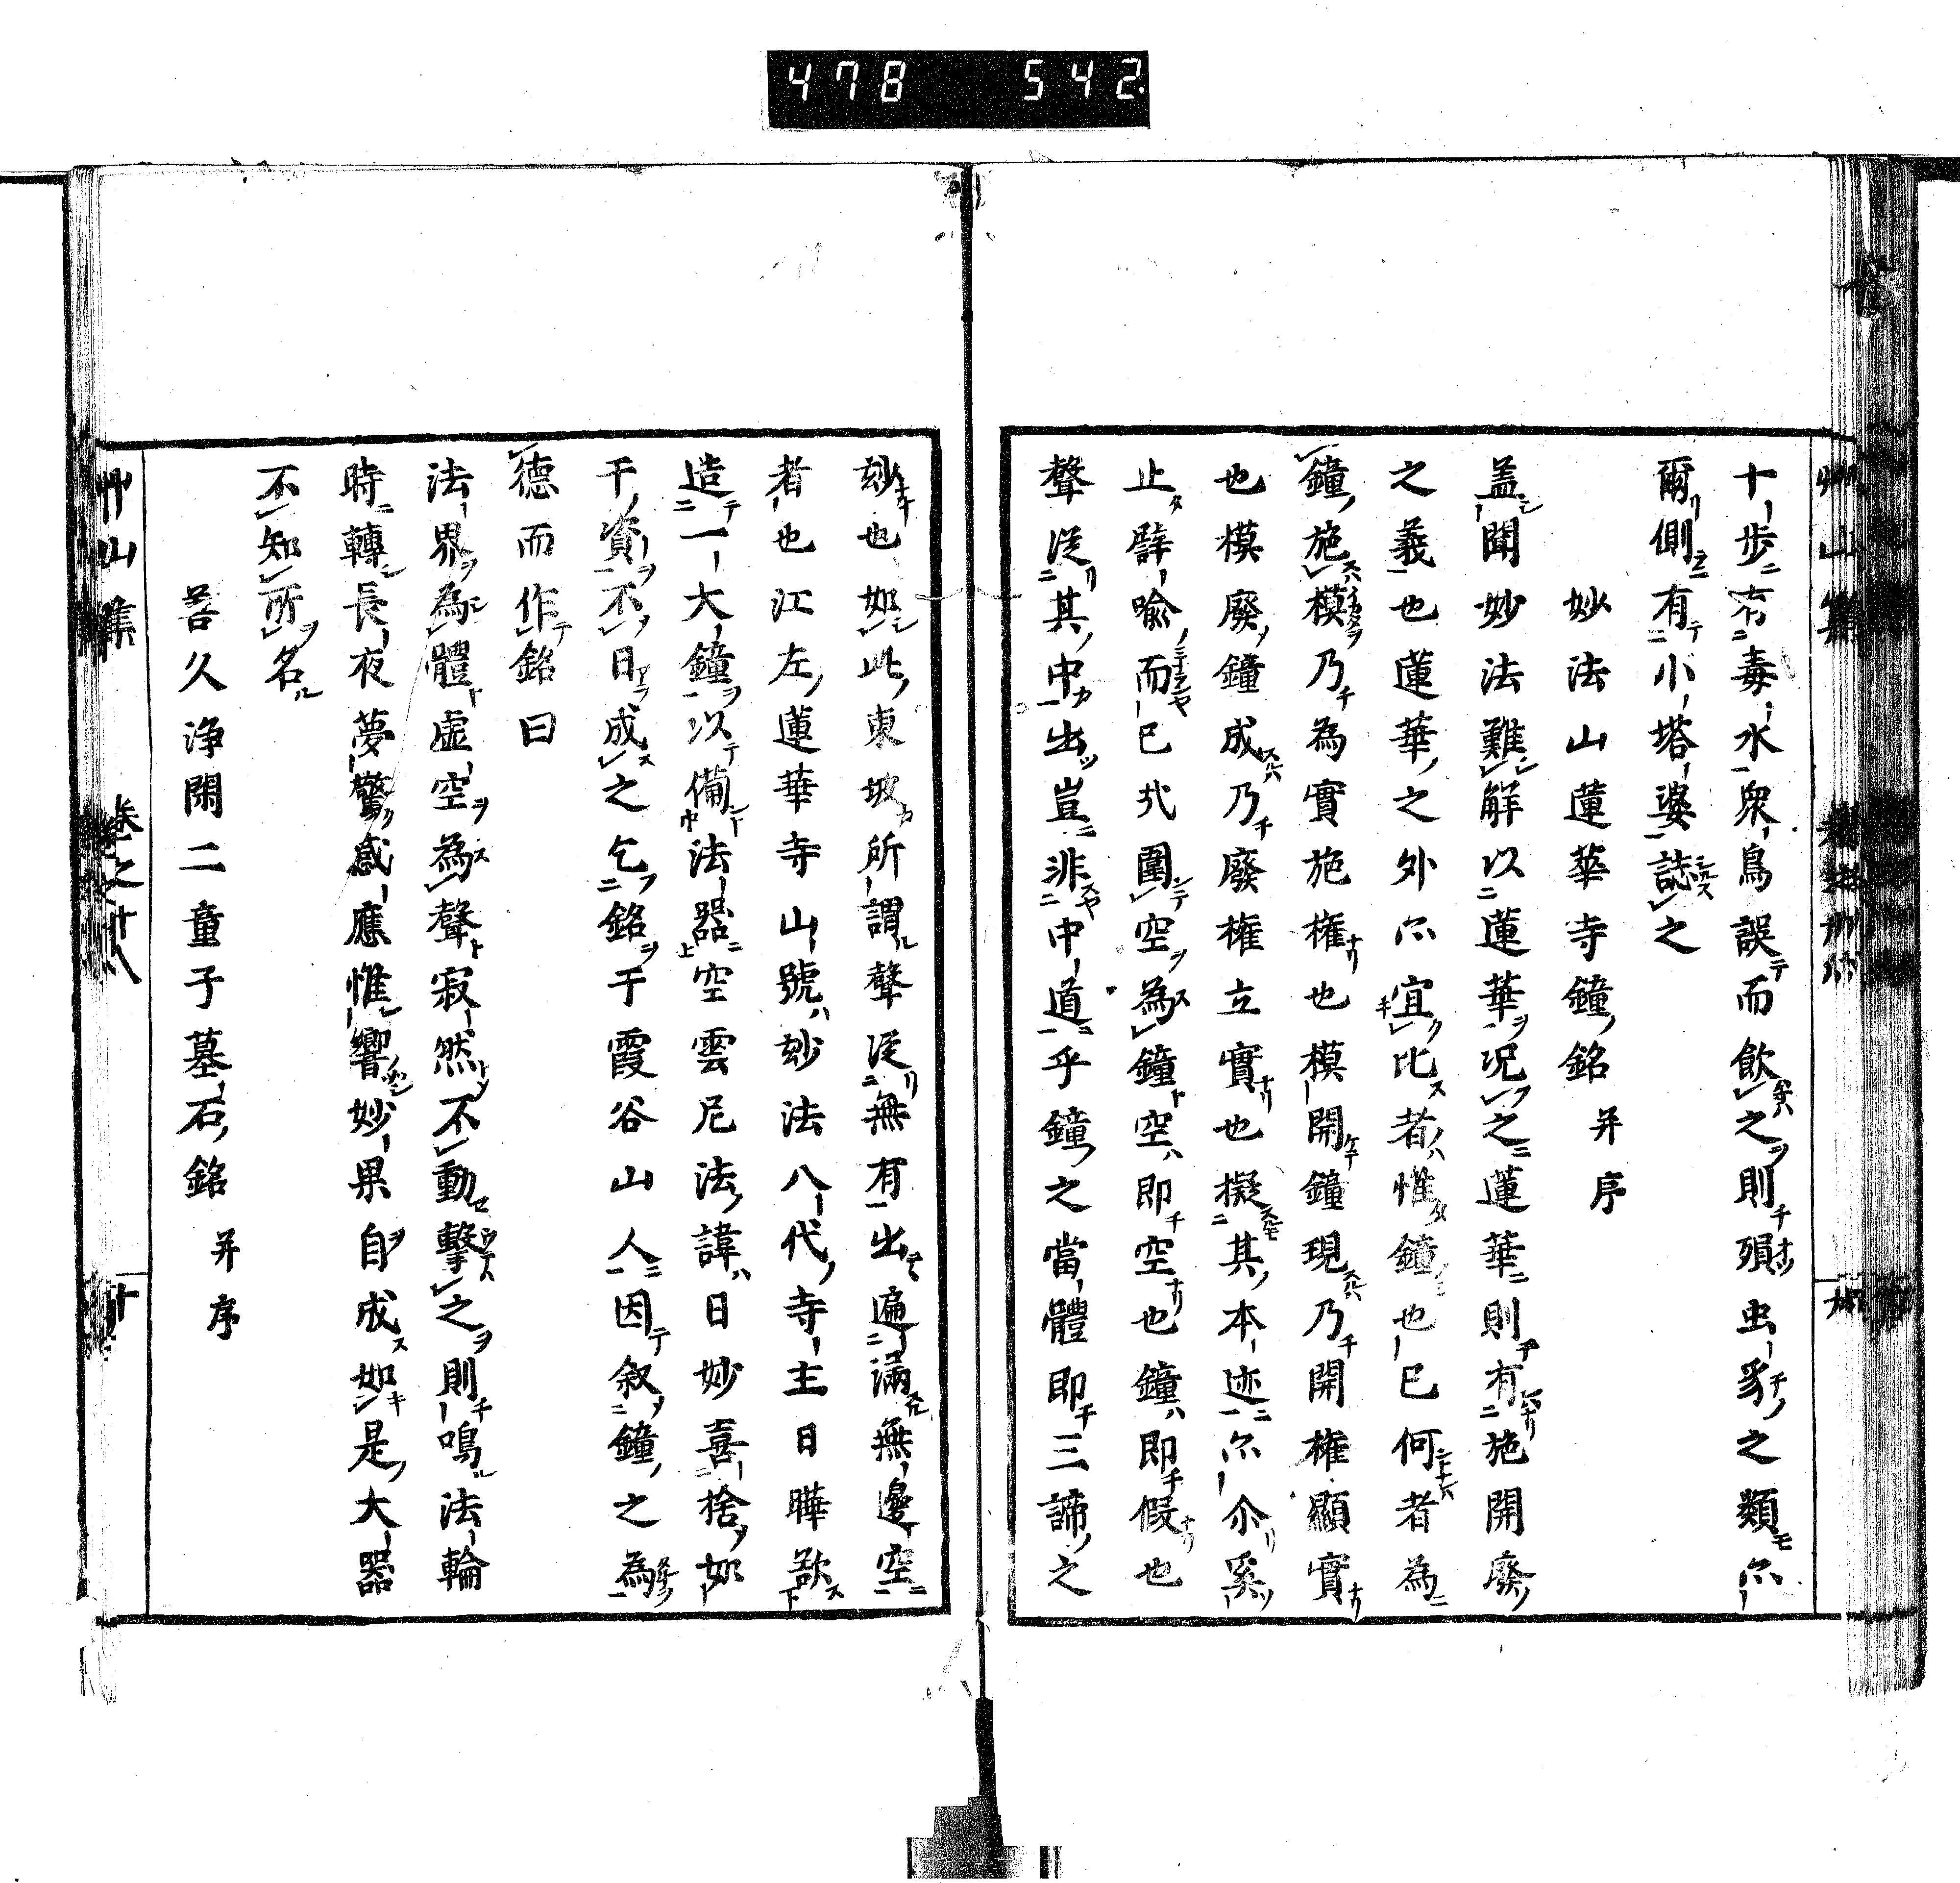 478 542
十歩有毒水衆鳥誤而飲之則殞虫豸之類尓
爾側有小塔婆誌之
妙法山蓮華寺鐘銘 并序
盖聞妙法難解以蓮華況之蓮華則有施開廢
之義也蓮華之外尓宜比者惟鐘也已何者為
鐘施模乃為實施權也模開鐘現乃開權顯實
也模廢鐘成乃廢權立實也擬其本迹尓尒奚
止譬喩而已弐圍空為鐘空即空也鐘即假也
聲從其中出豈非中道乎鐘之當體即三諦之
玅也如此東坡所謂聲從無有出遍滿無邊空
者也江左蓮華寺山號玅法八代寺主日曄欲
造一大鐘以備法器空雲尼法諱日妙喜捨如
干資不日成之乞銘于霞谷山人因叙鐘之為
德而作銘曰
法界為體虚空為聲寂然不動擊之則鳴法輪
時轉長夜夢驚感應惟響妙果自成如是大器
不知所名
善久浄閑二童子墓石銘 并序
艸山集 卷之十八 十